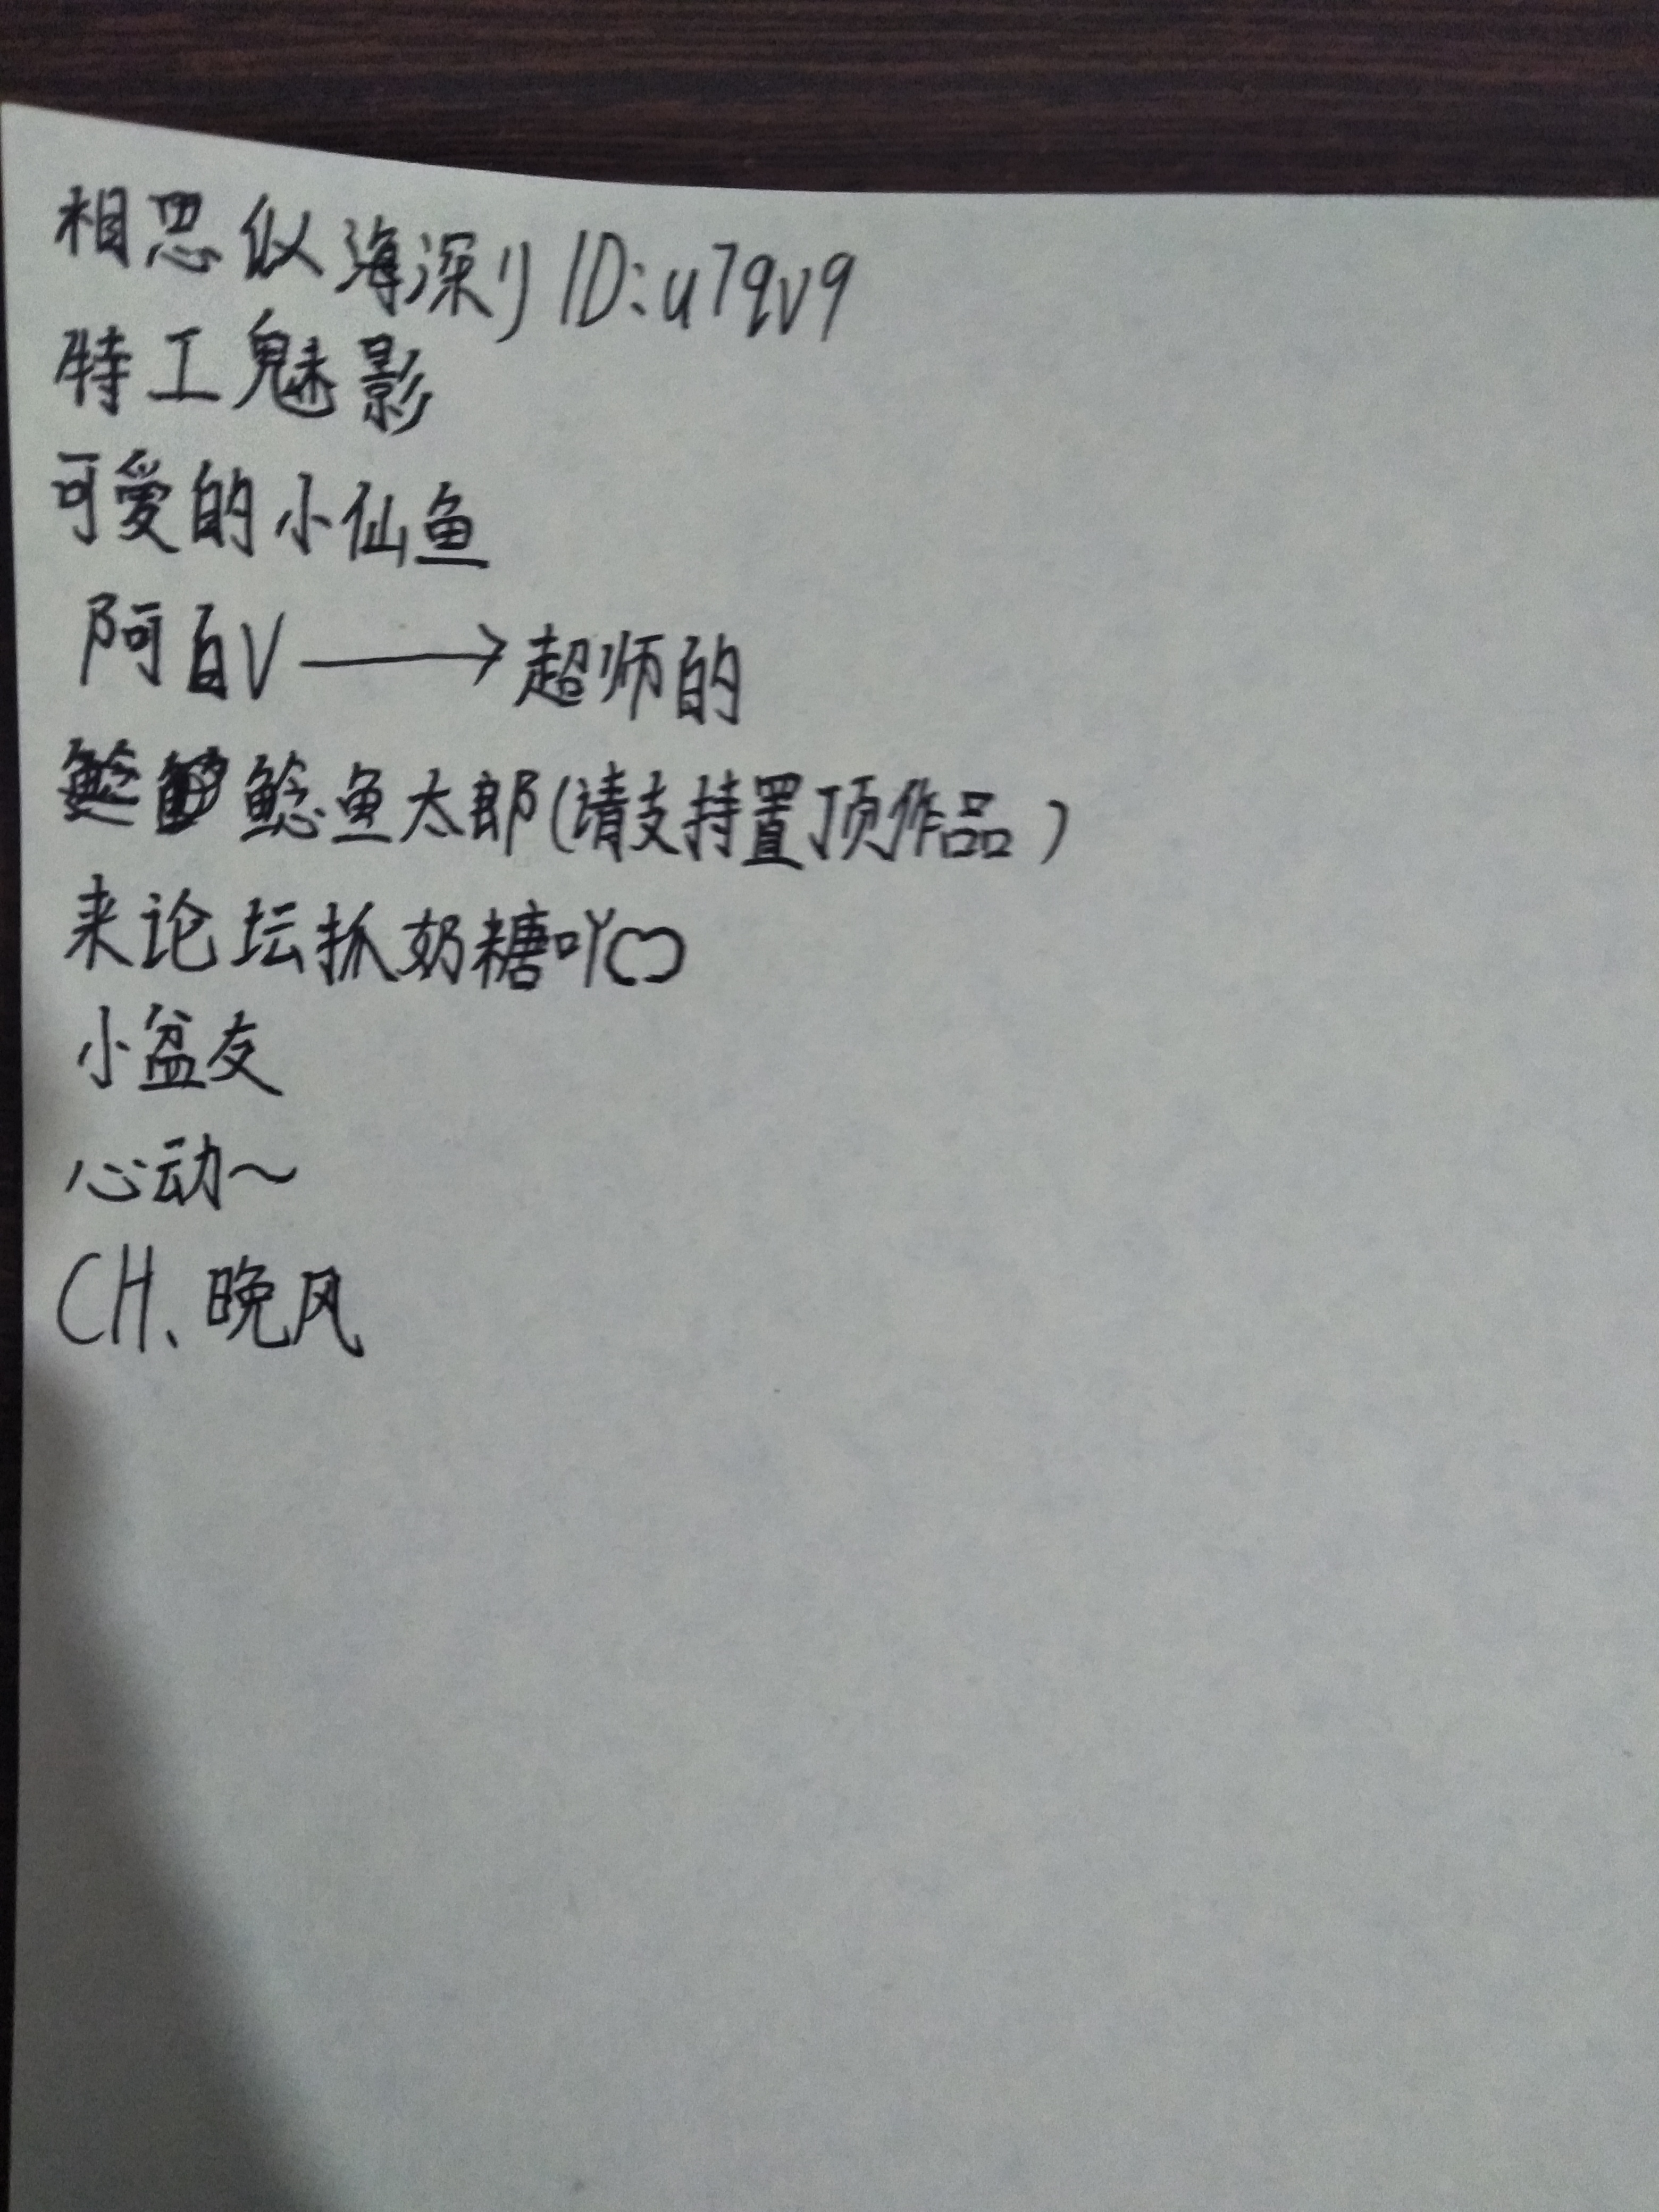 相思似海深リ ID:u7qv9
特工魅影
可爱的小仙鱼
阿白V→超师的
鲶鱼太郎(请支持置顶作品)
来论坛抓奶糖吖♡
小盆友
心动～
CH、晚风